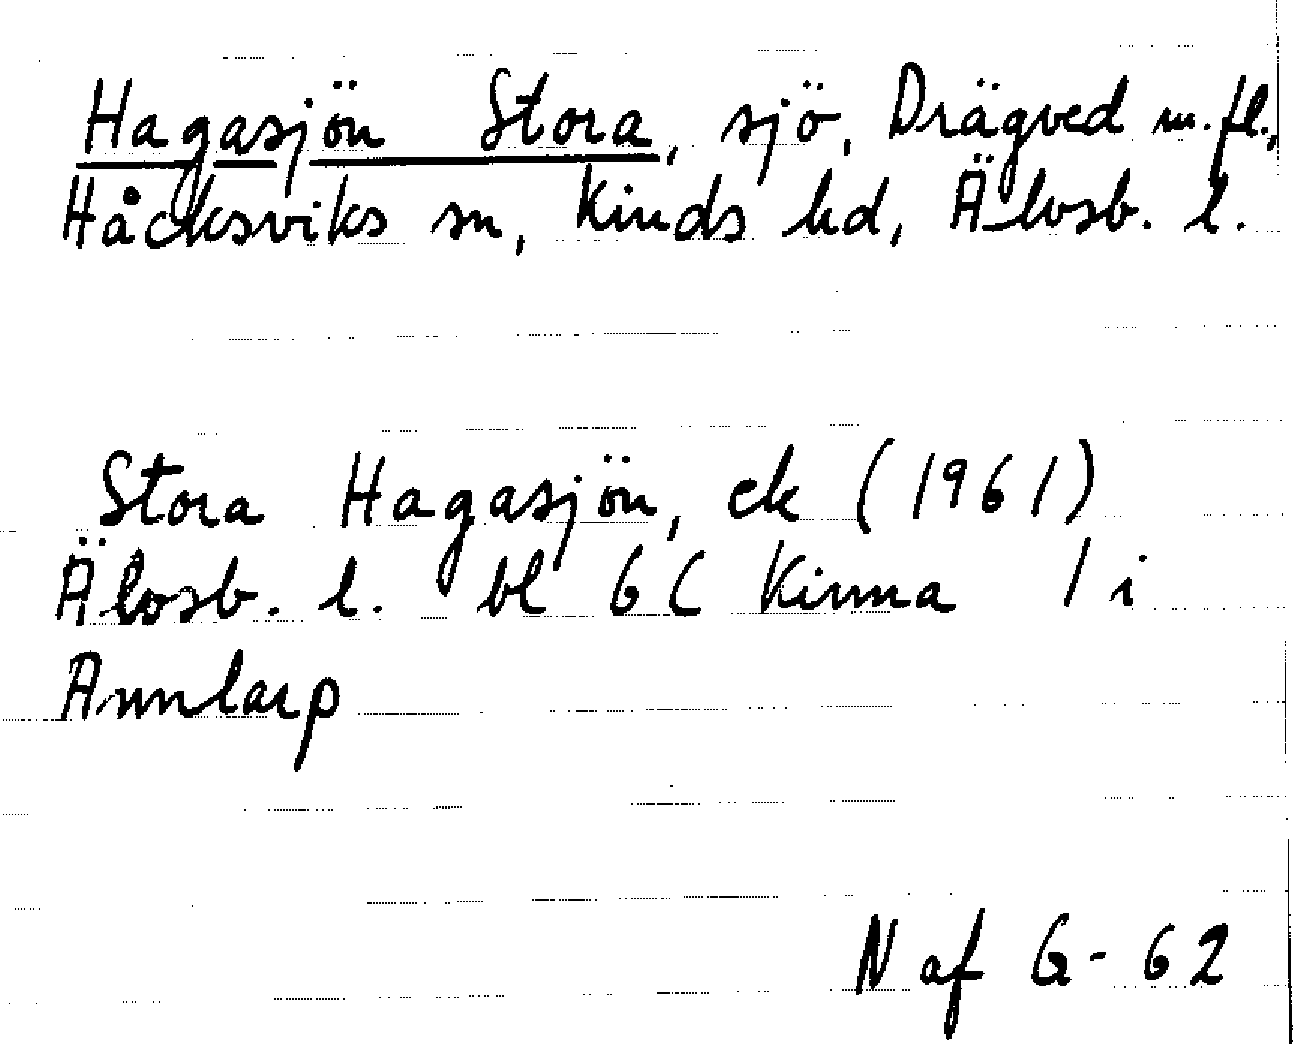 Hagasjön Stora, sjö, Drägved m.fl.,
Håcksviks sn, Kinds hd, Älvsb. l.
Stora Hagasjön, ek (1961)
Älvsb. l. bl 6C Kinna 1 i
Annlarp
N af G-62